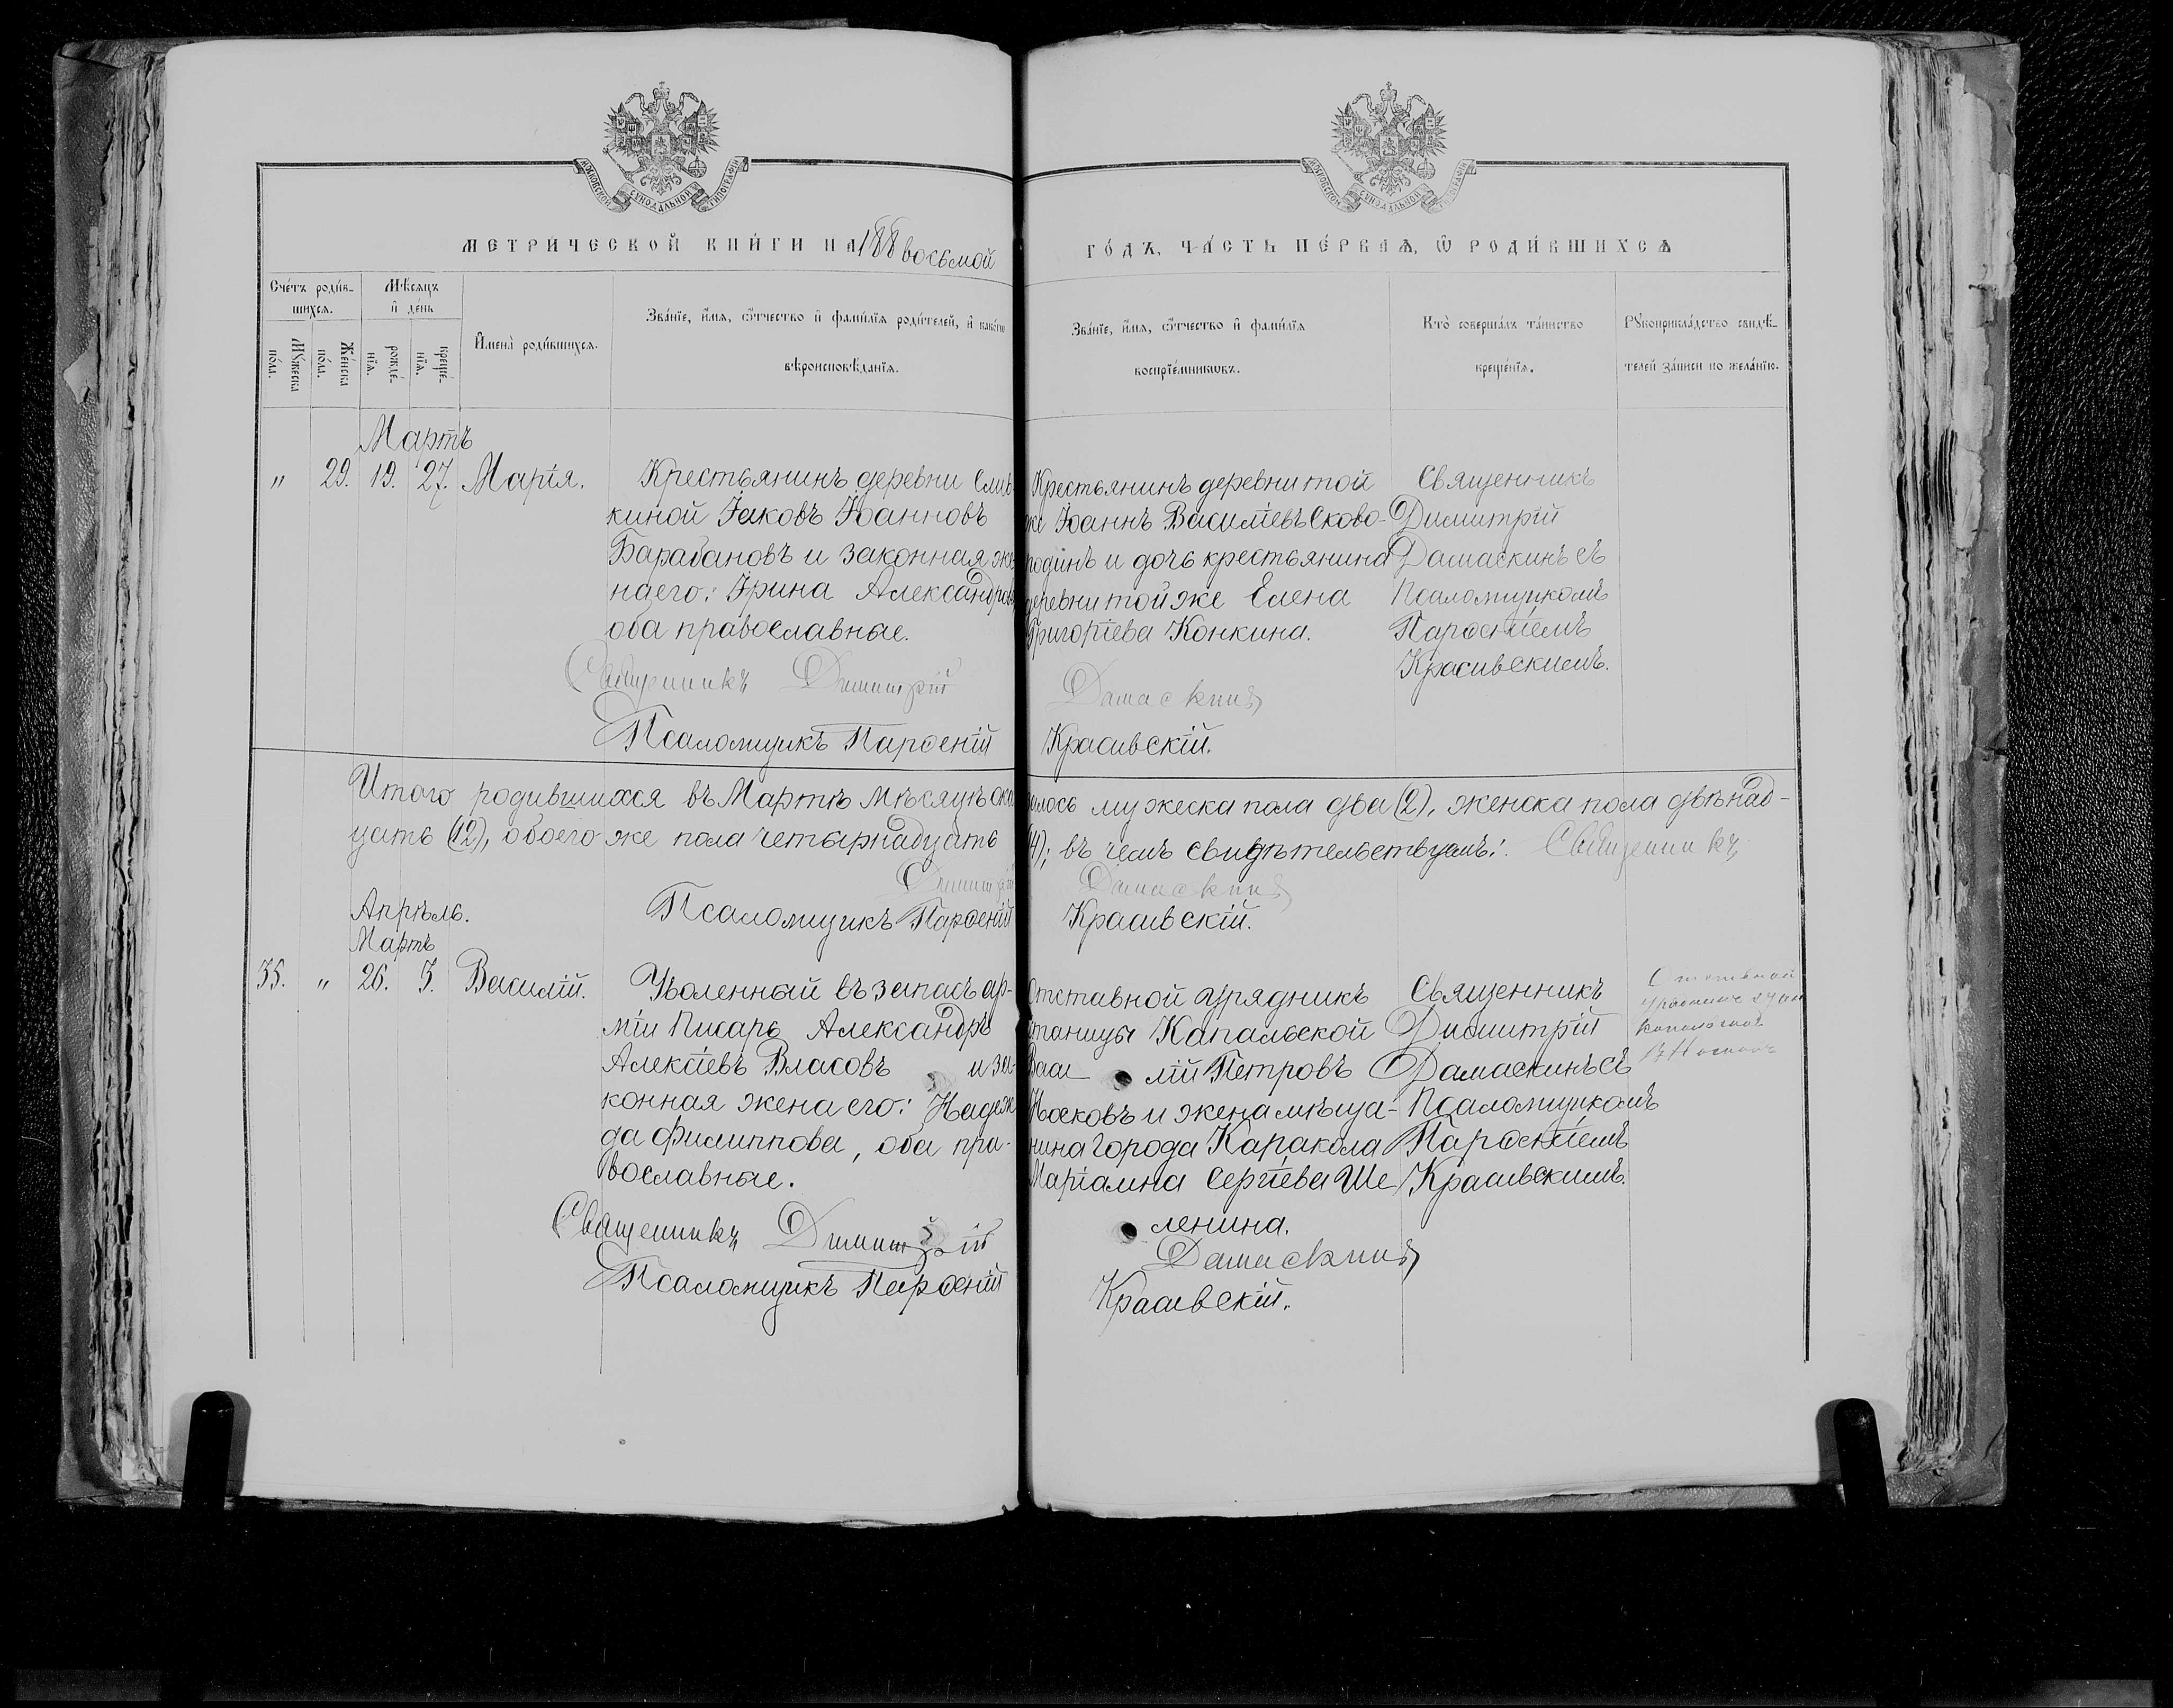 МОСКОВСКОЙ СУНОДАЛЬНОЙ ТИПОГРАФІИ
МОСКОВСКОЙ СУНОДАЛЬНОЙ ТИПОГРАФІИ
МЕТРИ́ЧЕСКОЙ КНИ́ГИ НА 188 восьмой
ГО́ДЪ, ЧА́СТЬ ПЕ́РВАѦ, Ѿ РОДИ́ВШИХСѦ
Сче́тъ роди́в-
шихсѧ.
Мꙋ́жеска по́ла.
Же́нска по́ла.
Мѣ́сѧцъ
и҆ де́нь
рожде́-
нїѧ.
креще́-
нїѧ.
И҆мена̀ роди́вшихсѧ.
Зва́нїе, и҆́мѧ, ѻ҆́тчество и҆ фами́лїѧ роди́телей, и҆ како́гѡ
вѣроисповѣ́данїѧ.
Зва́нїе, и҆́мѧ, ѻ҆́тчество и҆ фами́лїѧ
воспрїе́мникѡвъ.
Кто̀ соверша́лъ та́инство
креще́нїѧ.
Рꙋкоприкла́дство свидѣ́-
телей за́писи по жела́нїю.
Мартъ
" 29. 19. 27. Марія.
Крестьянинъ деревни Слив-
киной Іаковъ Іоанновъ
Барабановъ и законная же-
на его: Ирина Александров
оба православные.
Священникъ Димитрій
Псаломщикъ Парѳеній
Крестьянинъ деревни той
же Іоаннъ Василіевъ Сково-
родинъ и дочь крестьянина
деревни той же Елена
Григоріева Конкина.
Дамаскинъ
Красивскій.
Священникъ
Димитрій
Дамаскинъ съ
Псаломщикомъ
Парѳеніемъ
Красивскимъ.
Итого родившихся въ Мартѣ мѣсяцѣ ока залось мужеска пола два (2), женска пола двѣнад-
цать (12), обоего же пола четырнадцать (14); въ чемъ свидѣтельствуемъ: Священникъ
Димитрій Дамаскинъ
Псаломщикъ Парѳеній Красивскій.
Апрѣль.
Мартъ
35. " 26. 3. Василій.
Уволенный въ запасъ ар-
міи Писарь Александръ
Алексіевъ Власовъ и за-
конная жена его: Надеж
да Филиппова, оба пра-
вославные.
Священникъ Димитрій
Псаломщикъ Парѳеній
Отставной урядникъ
станицы Капальской
Василій Петровъ
Носковъ и жена мѣща-
нина города Каракола
Маріамна Сергіева Ше
ленина.
Дамаскинъ
Красивскій.
Священникъ
Димитрій
Дамаскинъ съ
Псаломщикомъ
Парѳеніемъ
Красивскимъ.
Отставной